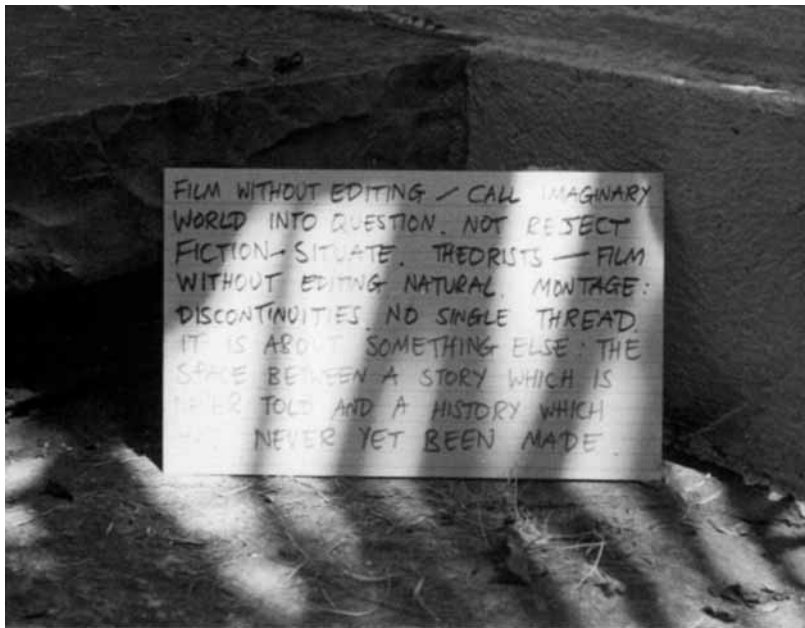 FILM WITHOUT EDITING – CALL IMAGINARY
WORLD INTO QUESTION. NOT REJECT
FICTION – SITUATE. THEORISTS — FILM
WITHOUT EDITING NATURAL. MONTAGE:
DISCONTINUITIES. NO SINGLE THREAD.
IT IS ABOUT SOMETHING ELSE: THE
SPACE BETWEEN A STORY WHICH IS
NEVER TOLD AND A HISTORY WHICH
NEVER YET BEEN MADE